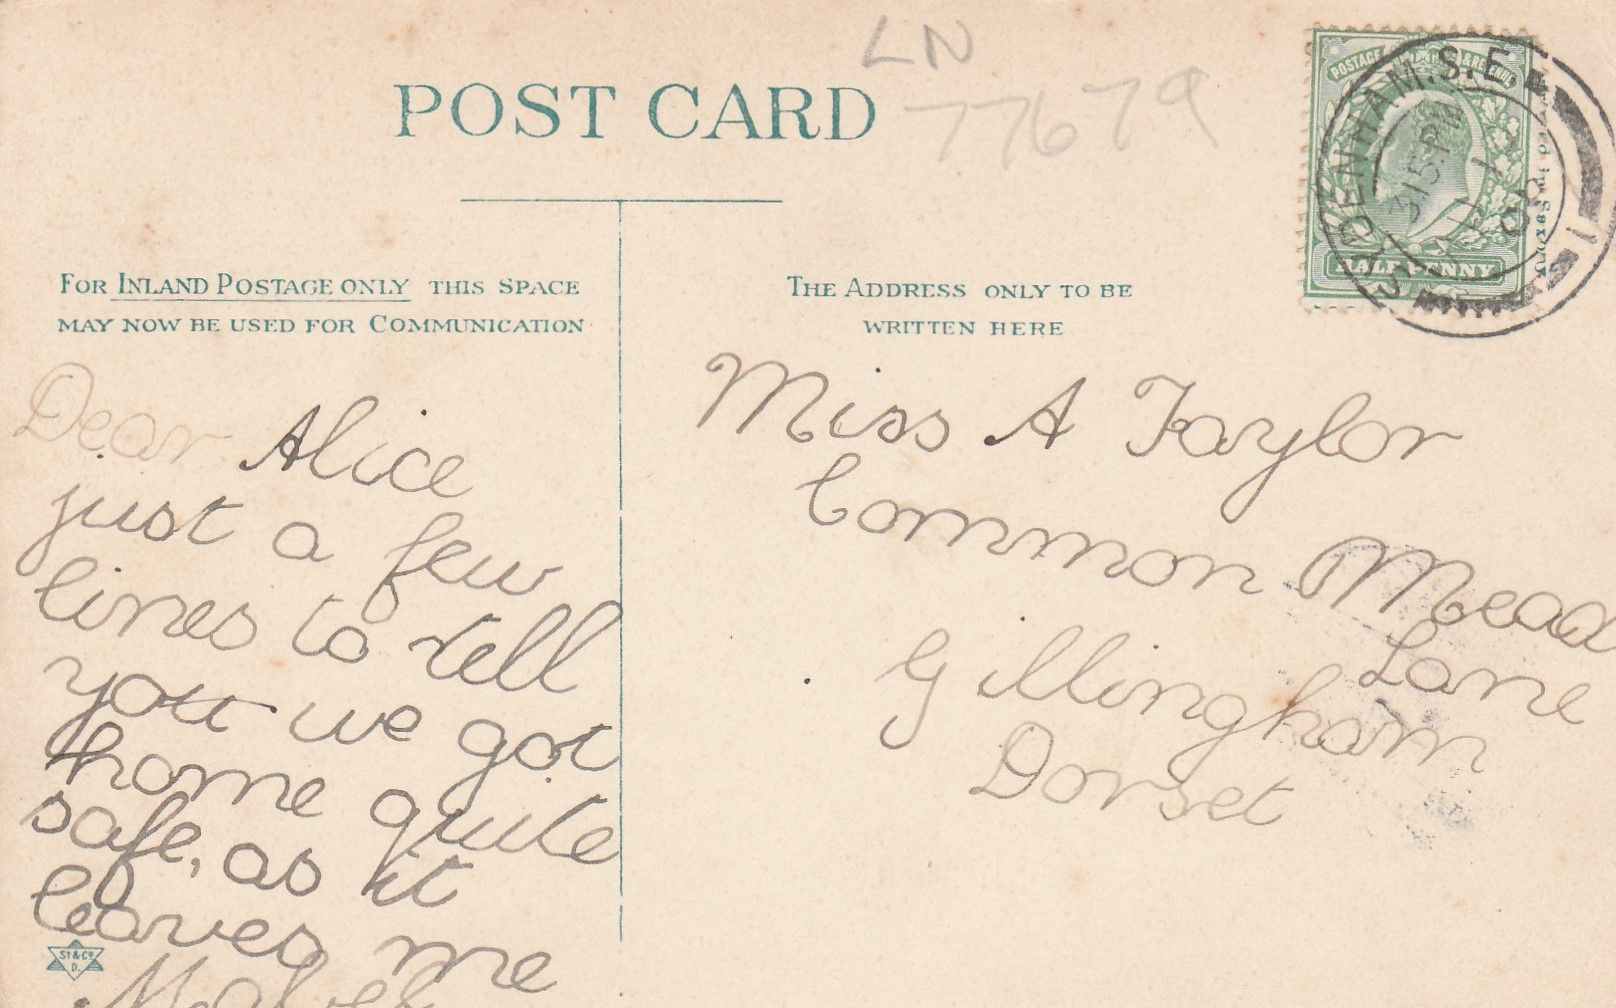 LN
77679
POST CARD
POSTAGE
HALF PENNY
SYDENHAM.S.E.
315 PM
08
1
FOR INLAND POSTAGE ONLY THIS SPACE
MAY NOW BE USED FOR COMMUNICATION
THE ADDRESS ONLY TO BE
WRITTEN HERE
Dear Alice
just a few
lines to tell
you we got
home quite
safe, as it
leaves me
Miss A Taylor
Common Mead
Lane
Gillingham
Dorset
St & Co
D.